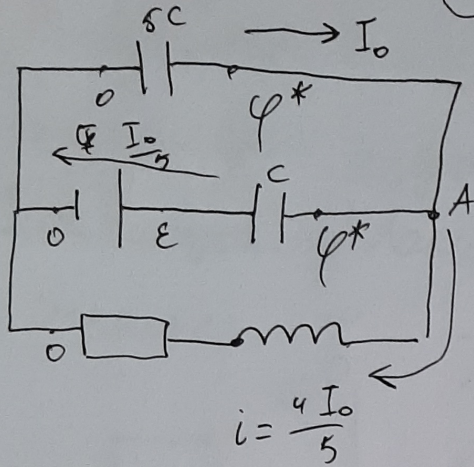 5C
I₀
0
φ*
I₀/5
C
A
0
ε
φ*
0
i = 4I₀/5